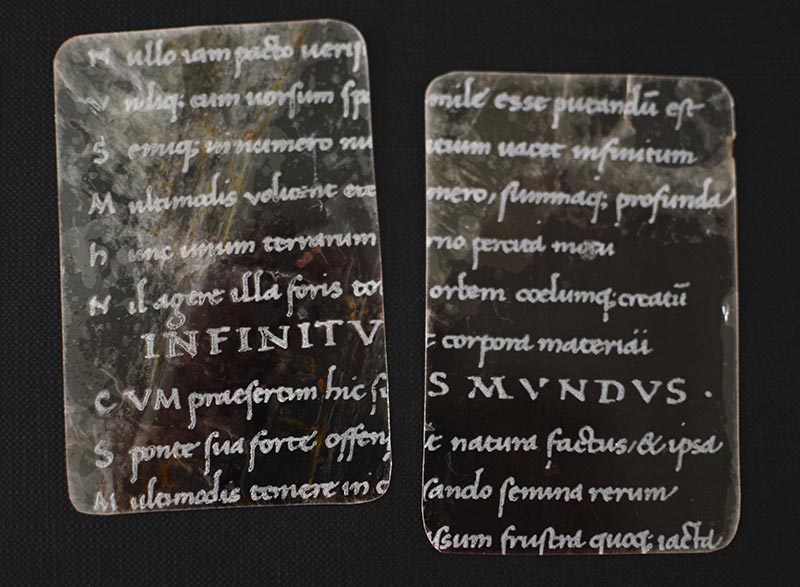 N ullo iam pacto ueri s
V ndiq; cum uorsum spa
S emiq; innumero nu
M ultimodis volitent ete
h unc unum terrarum
N il agere illa foris tot
INFINITV
C VM praesertim hic si
S ponte sua forte offen
M ultimodis temere in c
mile esse putandū est
tium uacet infinitum
mero, summaq; profunda
rno percita motu
orbem coelumq; creatū
t corpora materiäi
S MVNDVS .
t natura factus, & ipsa
sando semina rerum
ssum frustra quoq; iacta